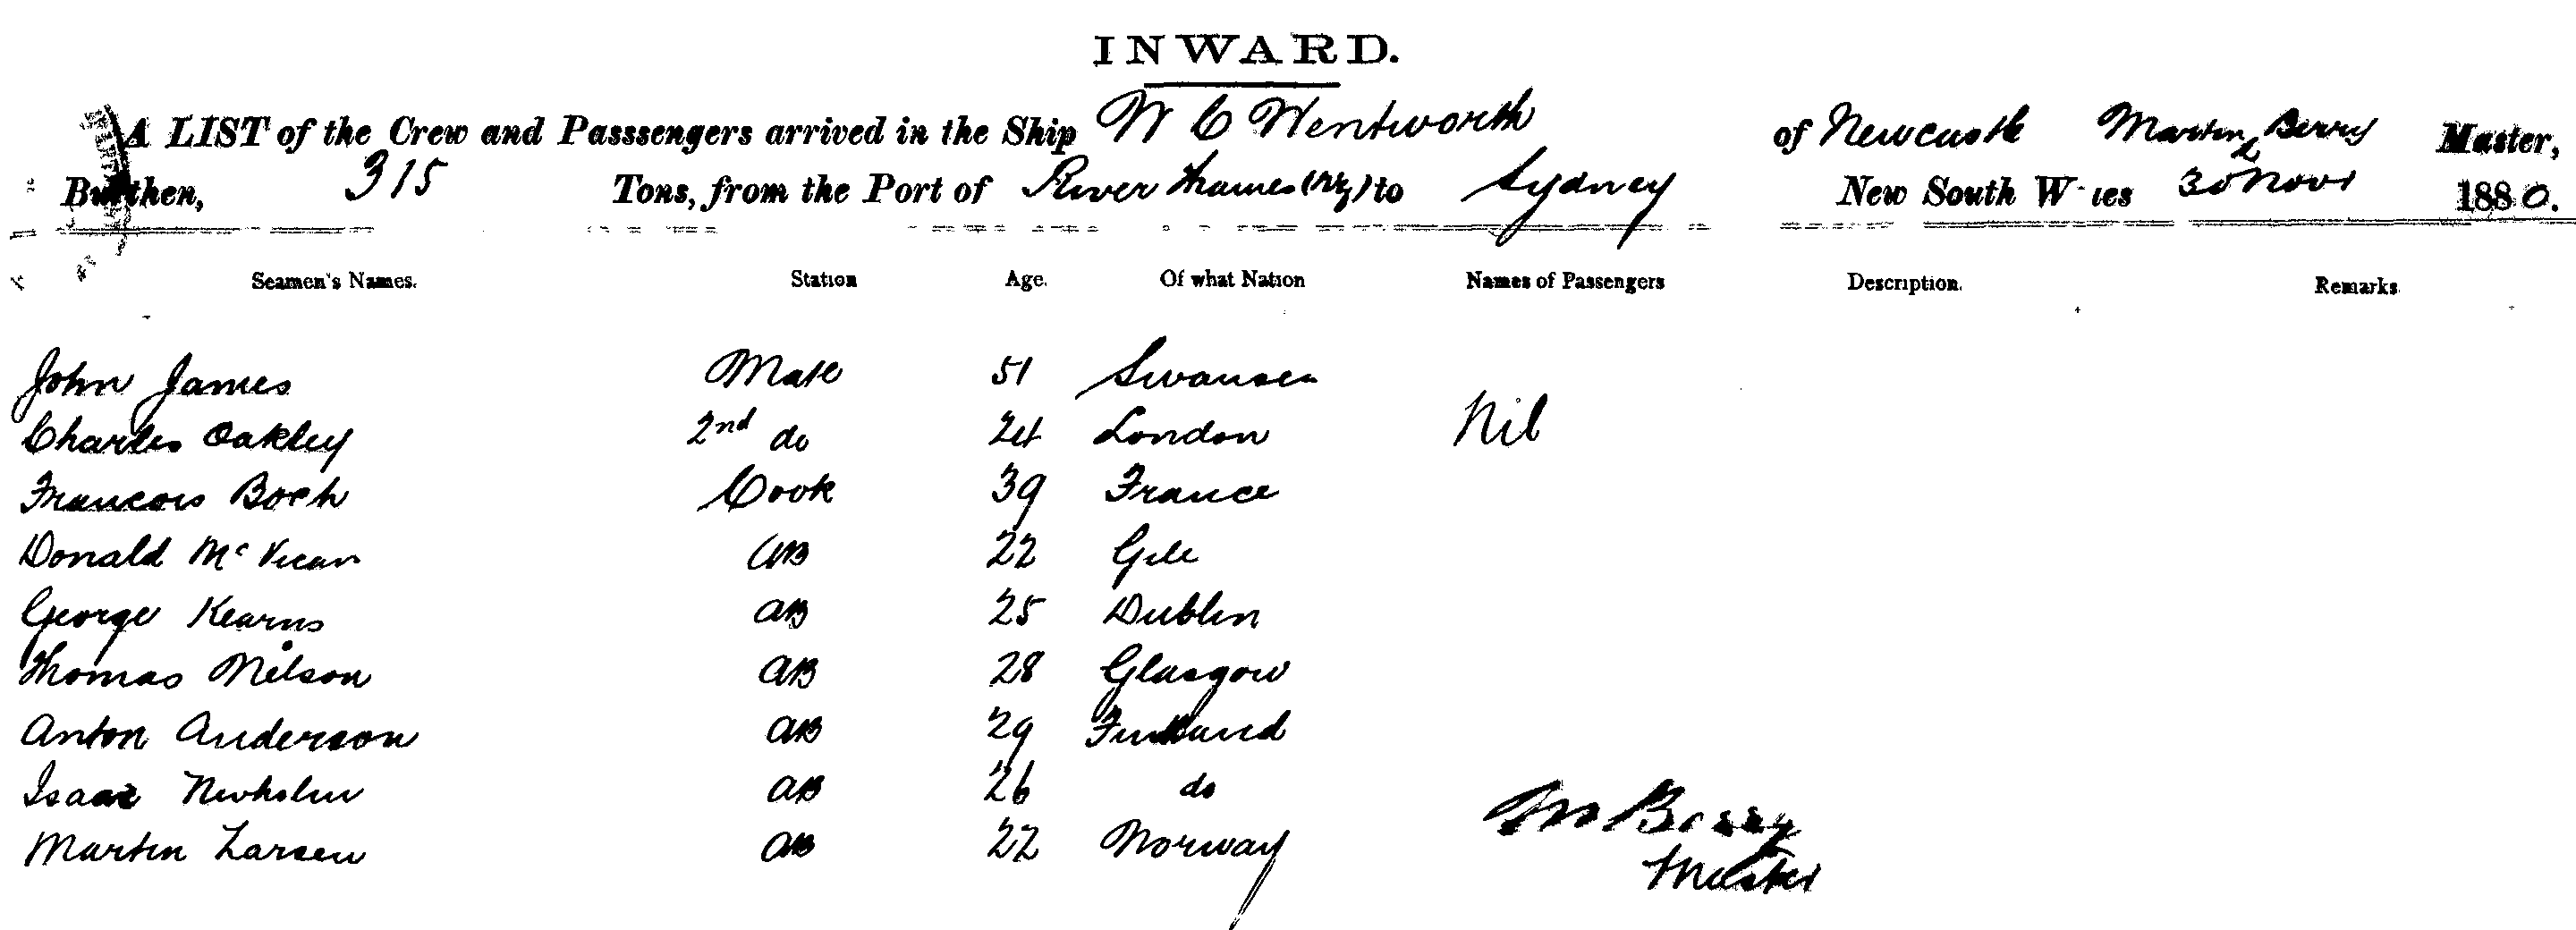 INWARD.
A LIST of the Crew and Passsengers arrived in the Ship W C Wentworth of Newcastle Martin Berry Master,
Burthen, 315 Tons, from the Port of River Thames (NZ) to Sydney New South Wales 30 Novr 1880.
Seamen's Names. Station Age. Of what Nation Names of Passengers Description. Remarks
John James Mate 51 Swansea
Charles Oakley 2nd do 24 London Nil
Francois Boch Cook 39 France
Donald McVicar AB 22
George Kearns AB 25 Dublin
Thomas Nelson AB 28 Glasgow
Anton Anderson AB 29 Finland
Isaac AB 26 do
Martin Larsen AB 22 Norway
M Berry
Master